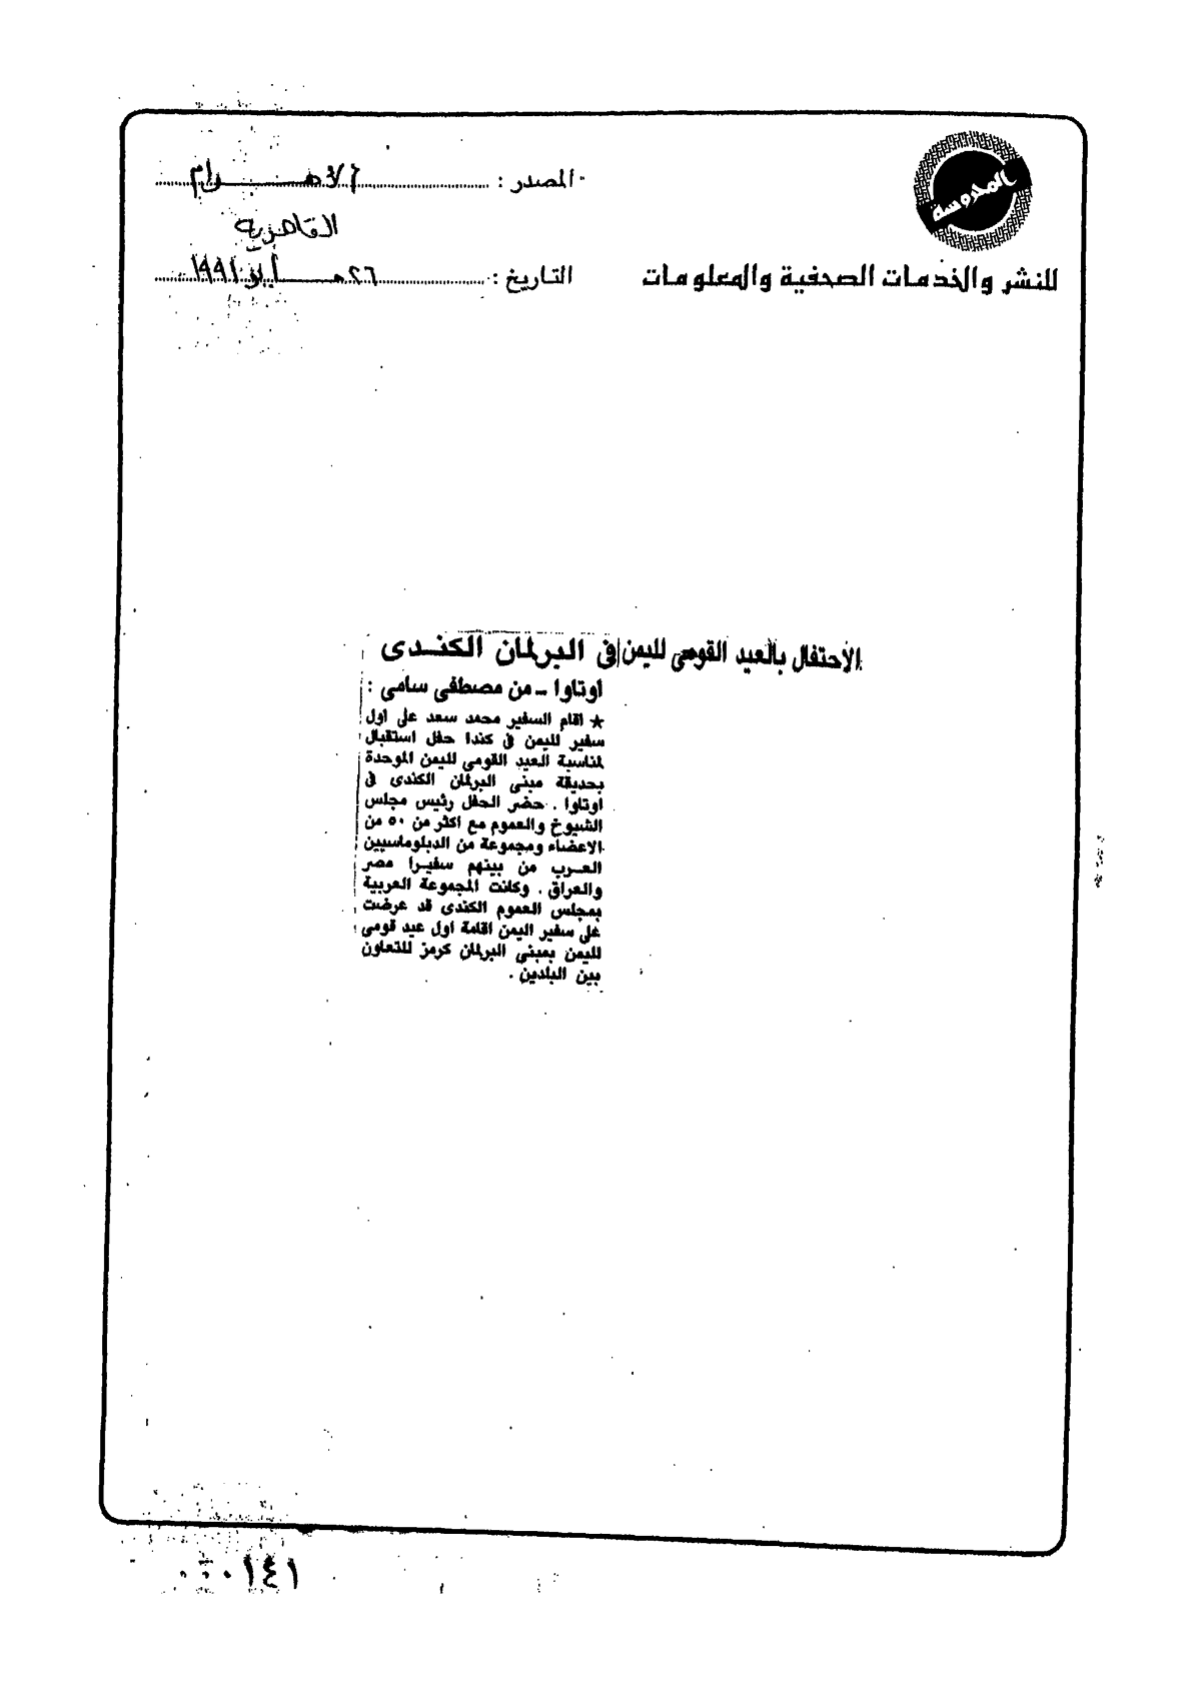 المحروسة
للنشر والخدمات الصحفية والمعلومات
المصدر : الأهرام
القاهرية
التاريخ : ٢٦ ١٩٩١
الاحتفال بالعيد القومى لليمن فى البرلمان الكندى
اوتاوا ـ من مصطفى سامى :
★ اقام السفير محمد سعد على اول
سفير لليمن فى كندا حفل استقبال
لمناسبة العيد القومى لليمن الموحدة
بحديقة مبنى البرلمان الكندى فى
اوتاوا . حضر الحفل رئيس مجلس
الشيوخ والعموم مع اكثر من ٥٠ من
الاعضاء ومجموعة من الدبلوماسيين
العرب من بينهم سفيرا مصر
والعراق . وكانت المجموعة العربية
بمجلس العموم الكندى قد عرضت
على سفير اليمن اقامة اول عيد قومى
لليمن بمبنى البرلمان كرمز للتعاون
بين البلدين .
٠٠٠١٤١